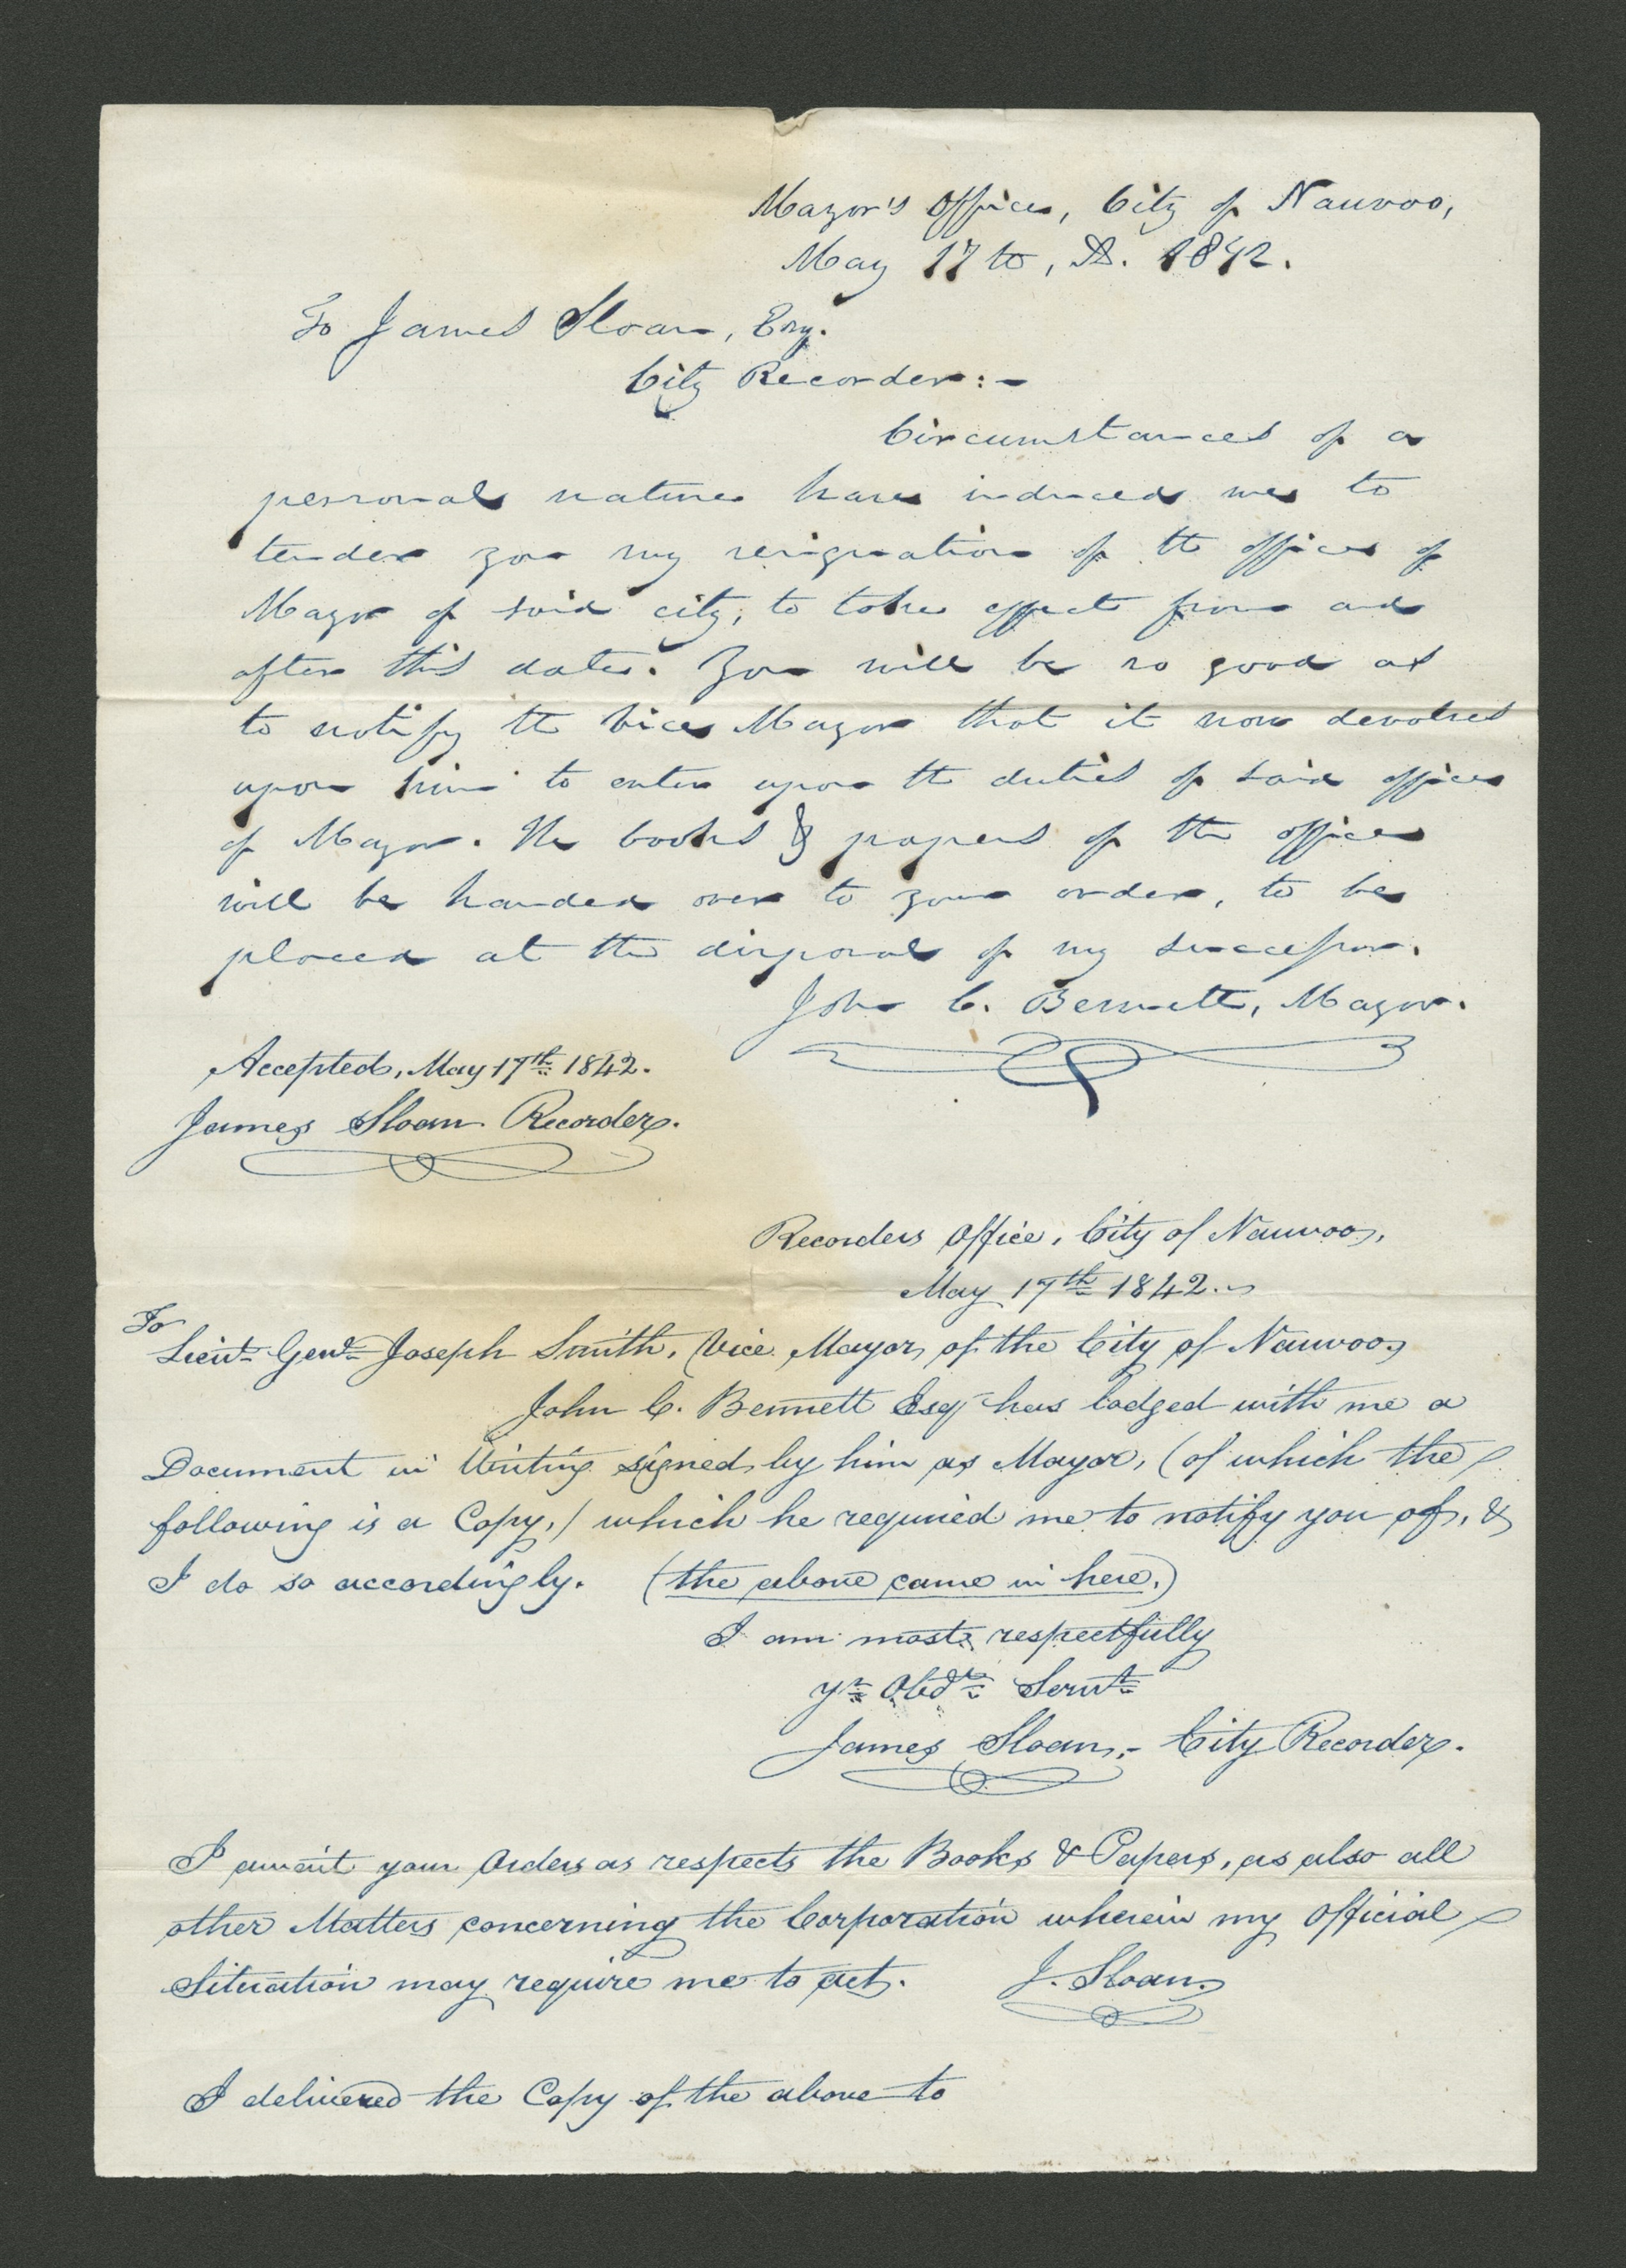 Mayor's Office, City of Nauvoo,
May 17th, AD. 1842.
To James Sloan, Esq.
City Recorder:-
Circumstances of a
personal nature have induced me to
tender you my resignation of the office of
Mayor of said city, to take effect from and
after this date. You will be so good as
to notify the Vice Mayor that it now devolves
upon him to enter upon the duties of said office
of Mayor. The books & papers of the office
will be handed over to your order, to be
placed at the disposal of my successor.
John C. Bennett, Mayor.
Accepted, May 17th 1842.
James Sloan Recorder.
Recorders Office, City of Nauvoo,
May 17th 1842.
To
Lieut Genl Joseph Smith, Vice Mayor, of the City of Nauvoo,
John C. Bennett Esqr has lodged with me a
Document in Writing signed by him as Mayor, (of which the
following is a Copy,) which he requried me to notify you of, &
I do so accordingly. (the above came in here.)
I am most respectfully
yr Obdt Servt
James Sloan,- City Recorder.
I await your Orders as respects the Books & Papers, as also all
other Matters concerning the Corporation wherein my Official
Situation may require me to act. J. Sloan.
I delivered the Copy of the above to